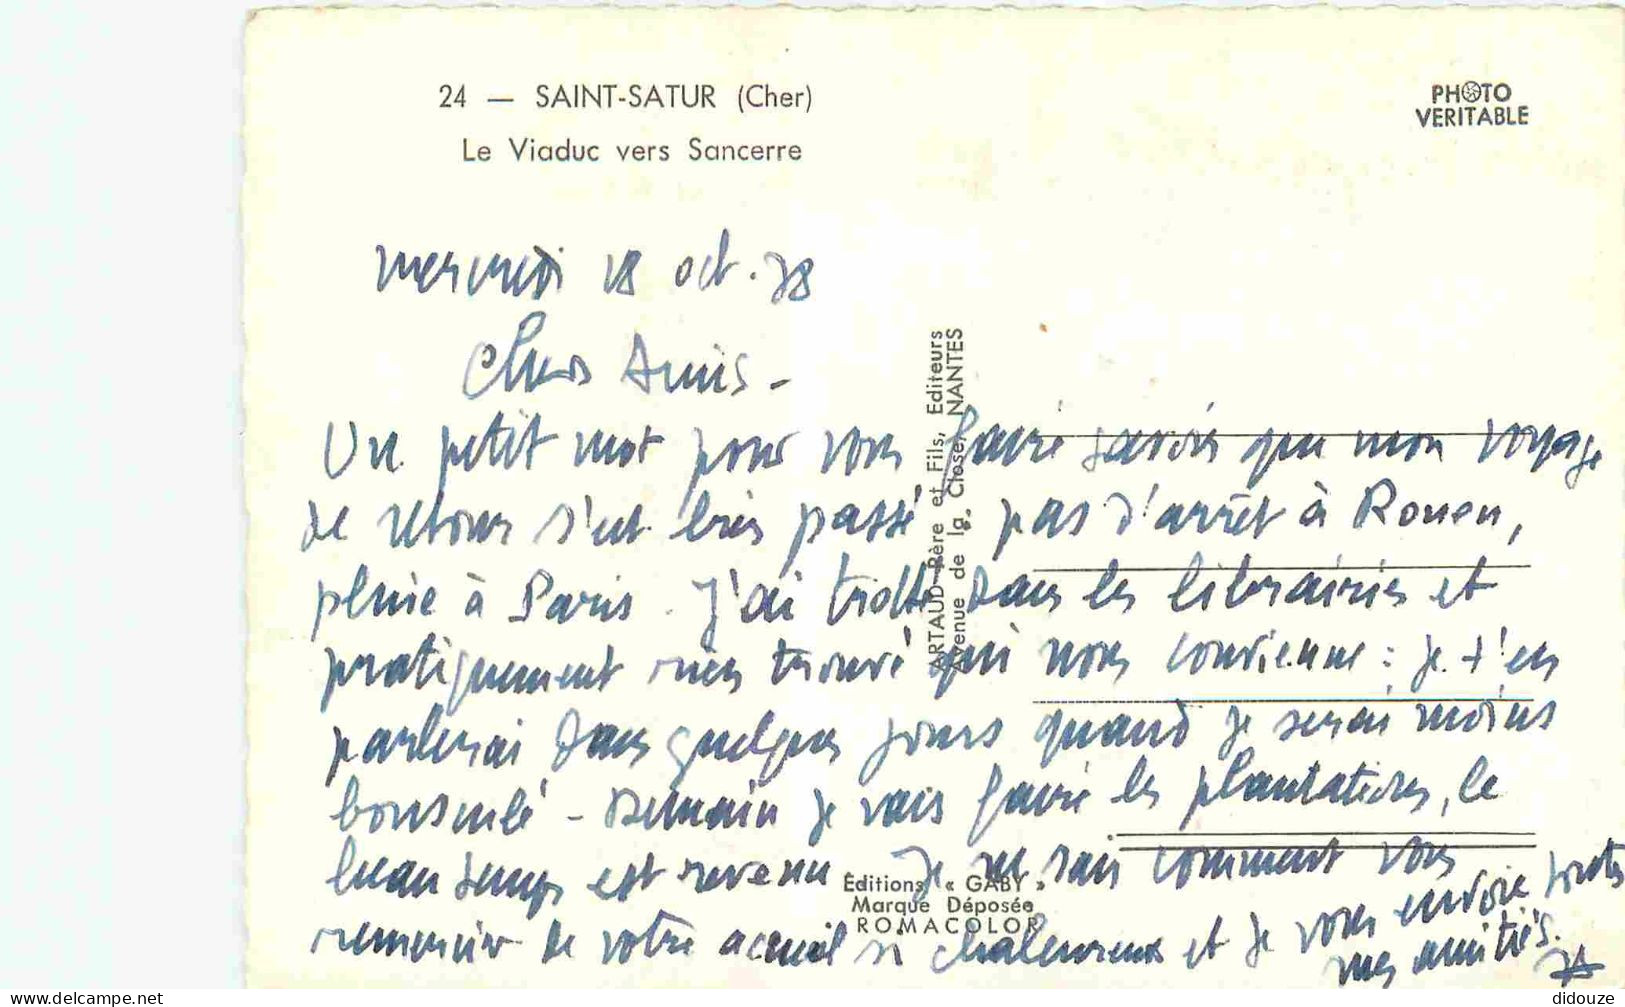 24 — SAINT-SATUR (Cher)
Le Viaduc vers Sancerre
PHOTO
VERITABLE
mercredi 18 oct. 78
Chers Amis -
Un petit mot pour vous faire savoir que mon voyage
de retour s'est bien passé, pas d'arrêt à Rouen,
pluie à Paris. J'ai trotté dans les librairies et
pratiquement rien trouvé qui nous convienne : je t'en
parlerai dans quelques jours quand je serai moins
bousculé - Demain je vais faire les plantations, le
beau temps est revenu. Je ne sais comment vous
remercier de votre accueil si chaleureux et je vous envoie toutes
mes amitiés.
ARTAUD Père et Fils, Editeurs
Avenue de la Close, NANTES
Editions « GABY »
Marque Déposée
ROMACOLOR
delcampe.net
didouze